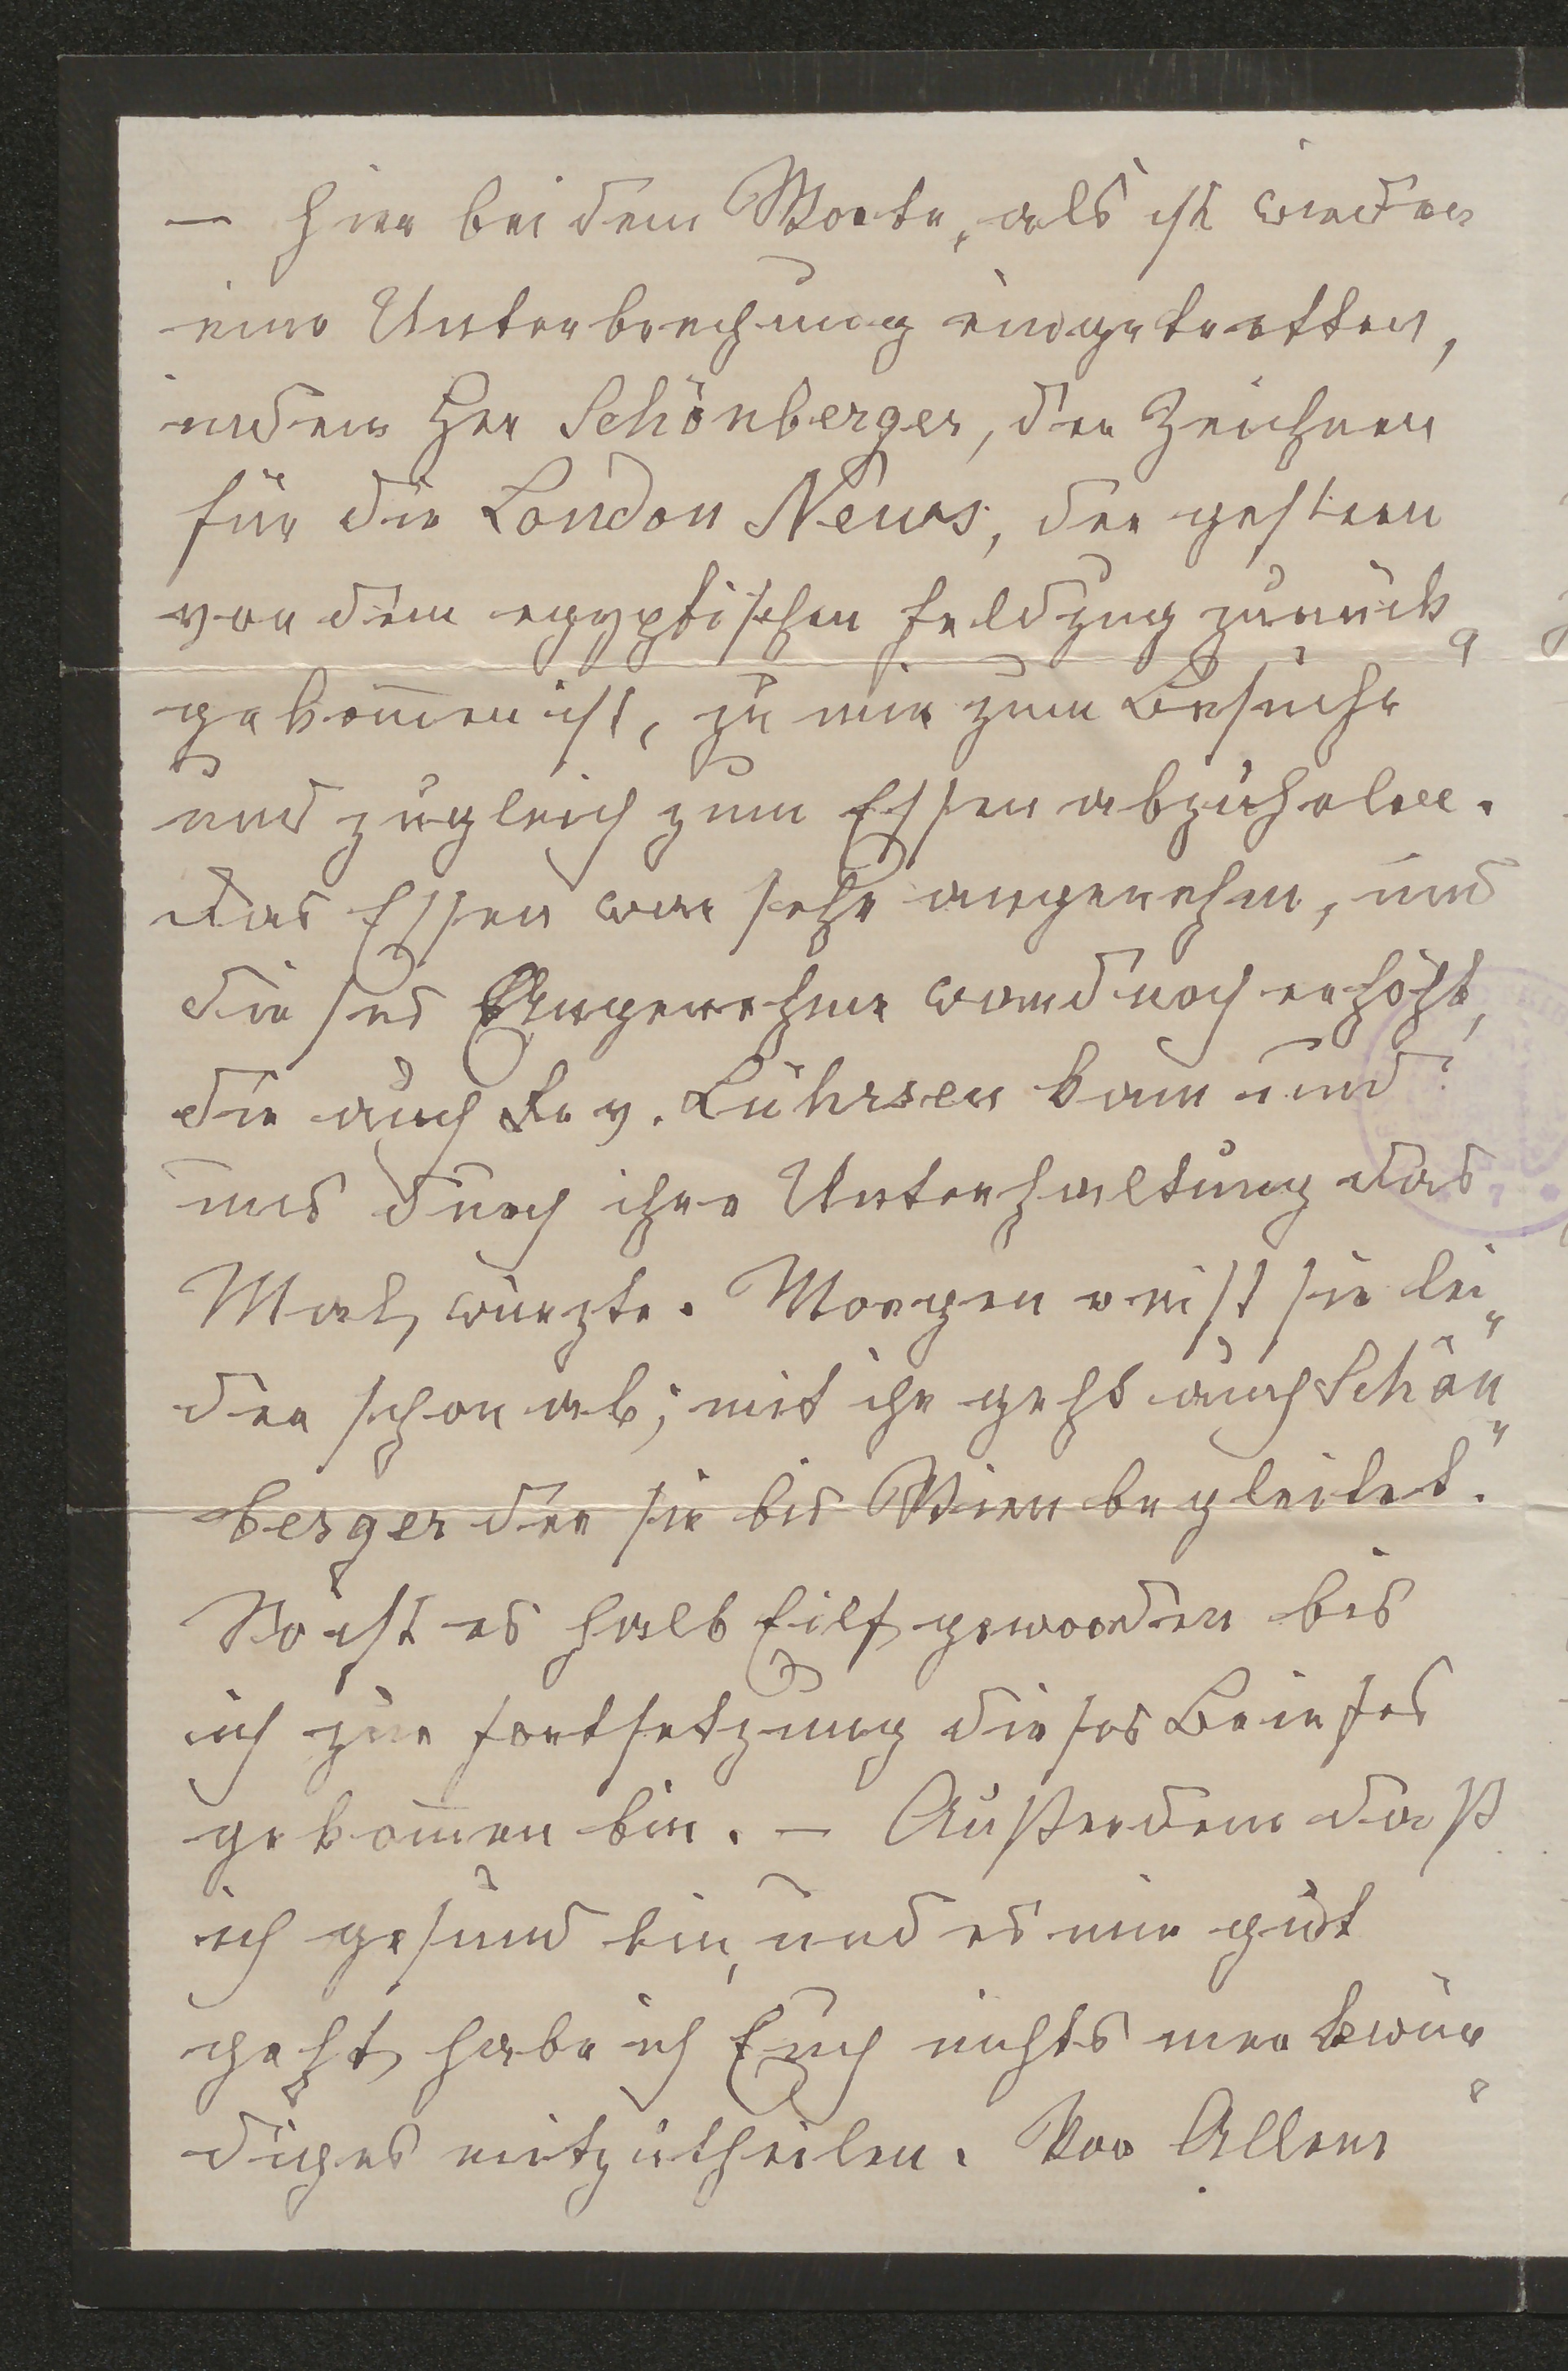 — hier bei dem Worte „als ist wieder
eine Unterbrechung eingetretten,
indem Her Schönberger, der Zeichner
für die London News, der gestern
von dem egyptischen Feldzug zurück„
gekom̄en ist, zu mir zum Besuche
und zugleich zum Essen abzuholen.
Das Essen war sehr angenehm, und
dieses Angenehme ward noch erhöht,
die auch Fr v. Lührsen kam und
uns durch ihre Unterhaltung das
Mal würzte. Morgen reist sie lei„
der schon ab; mit ihr geht auch Schön„
berger der sie bis Wien begleitet.
So ist es halb Eilf geworden bis
ich zur Fortsetzung dieses Briefes
gekom̄en bin. — Außerdem daß
ich gesund bin, und es mir gut
geht, habe ich Euch nichts merkwür„
diges mitzutheilen. Vor Allem